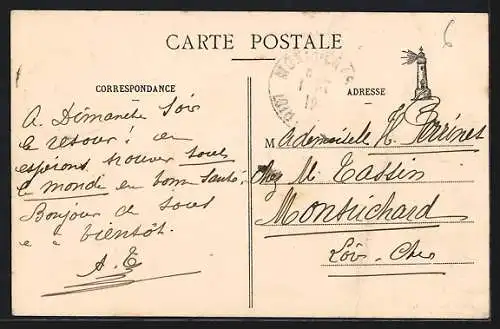 CARTE POSTALE
6
CORRESPONDANCE
ADRESSE
A Dimanche Soir
le retour! en
espérons trouver tout
le monde en bonne Santé.
Bonjour de tous
e a bientôt.
A. E
Mademoiselle H. Perrines
Chez M. Tassin
Montrichard
Loir-Cher